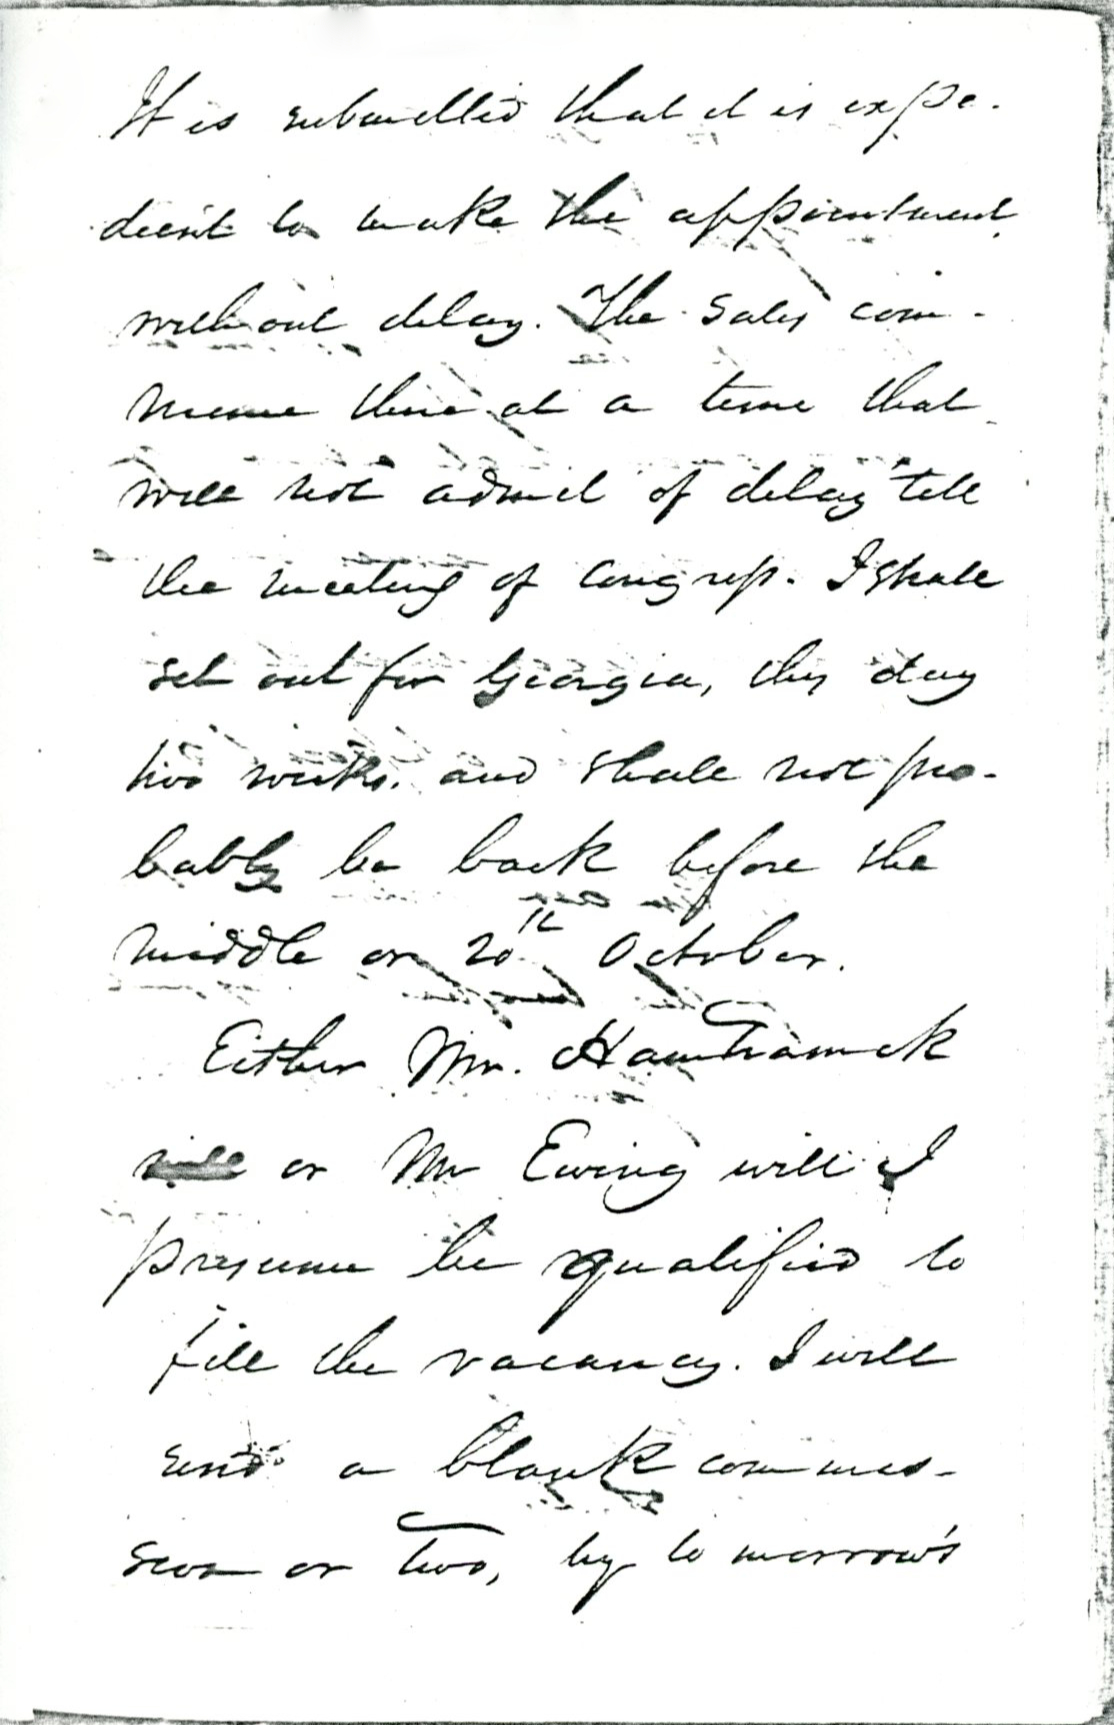 It is submitted that it is expe-
dient to make the appointment
without delay. The Sales com-
mence there at a time that
will not admit of delay 'till
the meeting of Congress. I shall
set out for Georgia, this day
two weeks, and shall not pro-
bably be back before the
middle or 20th October.
Either Mr. Hamtramck
will or Mr Ewing will I
presume be qualified to
fill the vacancy. I will
send a blank commis-
sion or two, by to morrow's